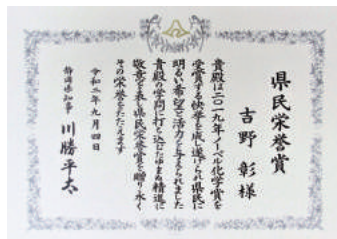 県民栄誉賞
吉野 彰様
貴殿は二〇一九年ノーベル化学賞を
受賞する快挙を成し遂げられ県民に
明るい希望と活力を与えられました
貴殿の学問に打ち込むたゆまぬ精進に
敬意を表し県民栄誉賞を贈り永く
その栄誉をたたえます
令和二年九月四日
静岡県知事 川勝平太